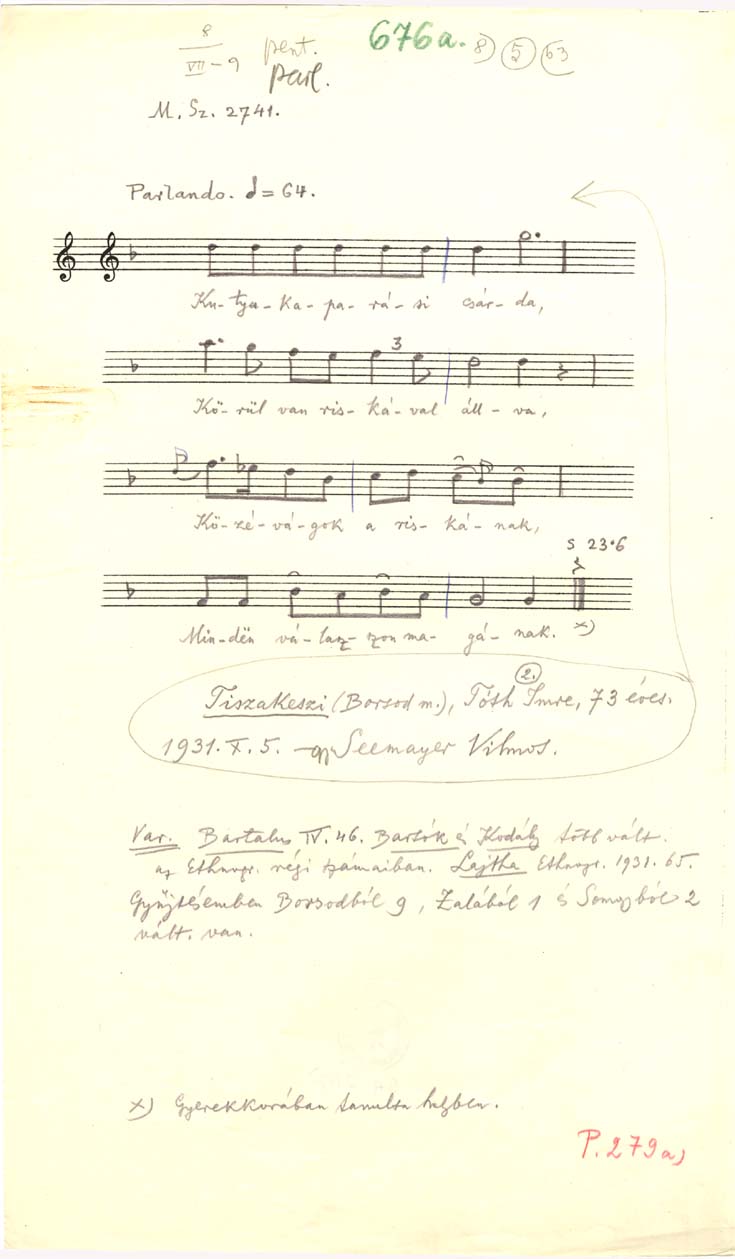 8
VII-9 pent. 676a. 8) 5 63
parl.
M. Sz. 2741.
Parlando. = 64.
Ku-tya-ka-pa-rá-si csár-da,
3
Kö-rül van ris-ká-val áll-va,
Kö-zé-vá-gok a ris-ká-nak,
s 23·6
Min-dën vá-lasz-szon ma-gá-nak. x)
2.
Tiszakeszi (Borsod m.), Tóth Imre, 73 éves.
1931. X. 5. Seemayer Vilmos.
Var. Bartalus IV. 46. Bartók és Kodály több vált.
az Ethnogr. régi számaiban. Lajtha Ethnogr. 1931. 65.
Gyüjtésemben Borsodból 9, Zalából 1 és Somogyból 2
vált. van.
x) Gyerekkorában tanulta helyben.
P. 279a)